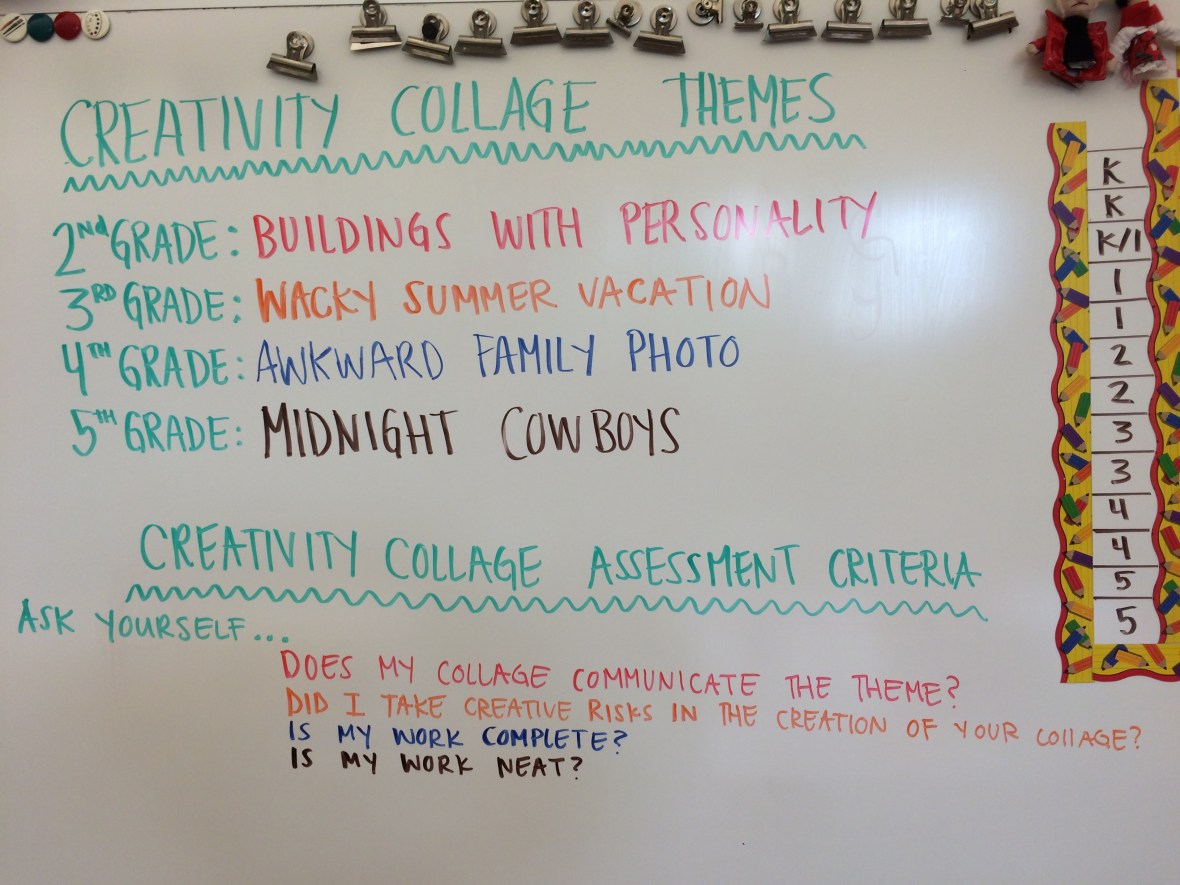 CREATIVITY COLLAGE THEMES
2ND GRADE: BUILDINGS WITH PERSONALITY
3RD GRADE: WACKY SUMMER VACATION
4TH GRADE: AWKWARD FAMILY PHOTO
5TH GRADE: MIDNIGHT COWBOYS
CREATIVITY COLLAGE ASSESSMENT CRITERIA
ASK YOURSELF...
DOES MY COLLAGE COMMUNICATE THE THEME?
DID I TAKE CREATIVE RISKS IN THE CREATION OF YOUR COllAGE?
IS MY WORK COMPLETE?
IS MY WORK NEAT?
K
K
K/1
1
1
2
2
3
3
4
4
5
5